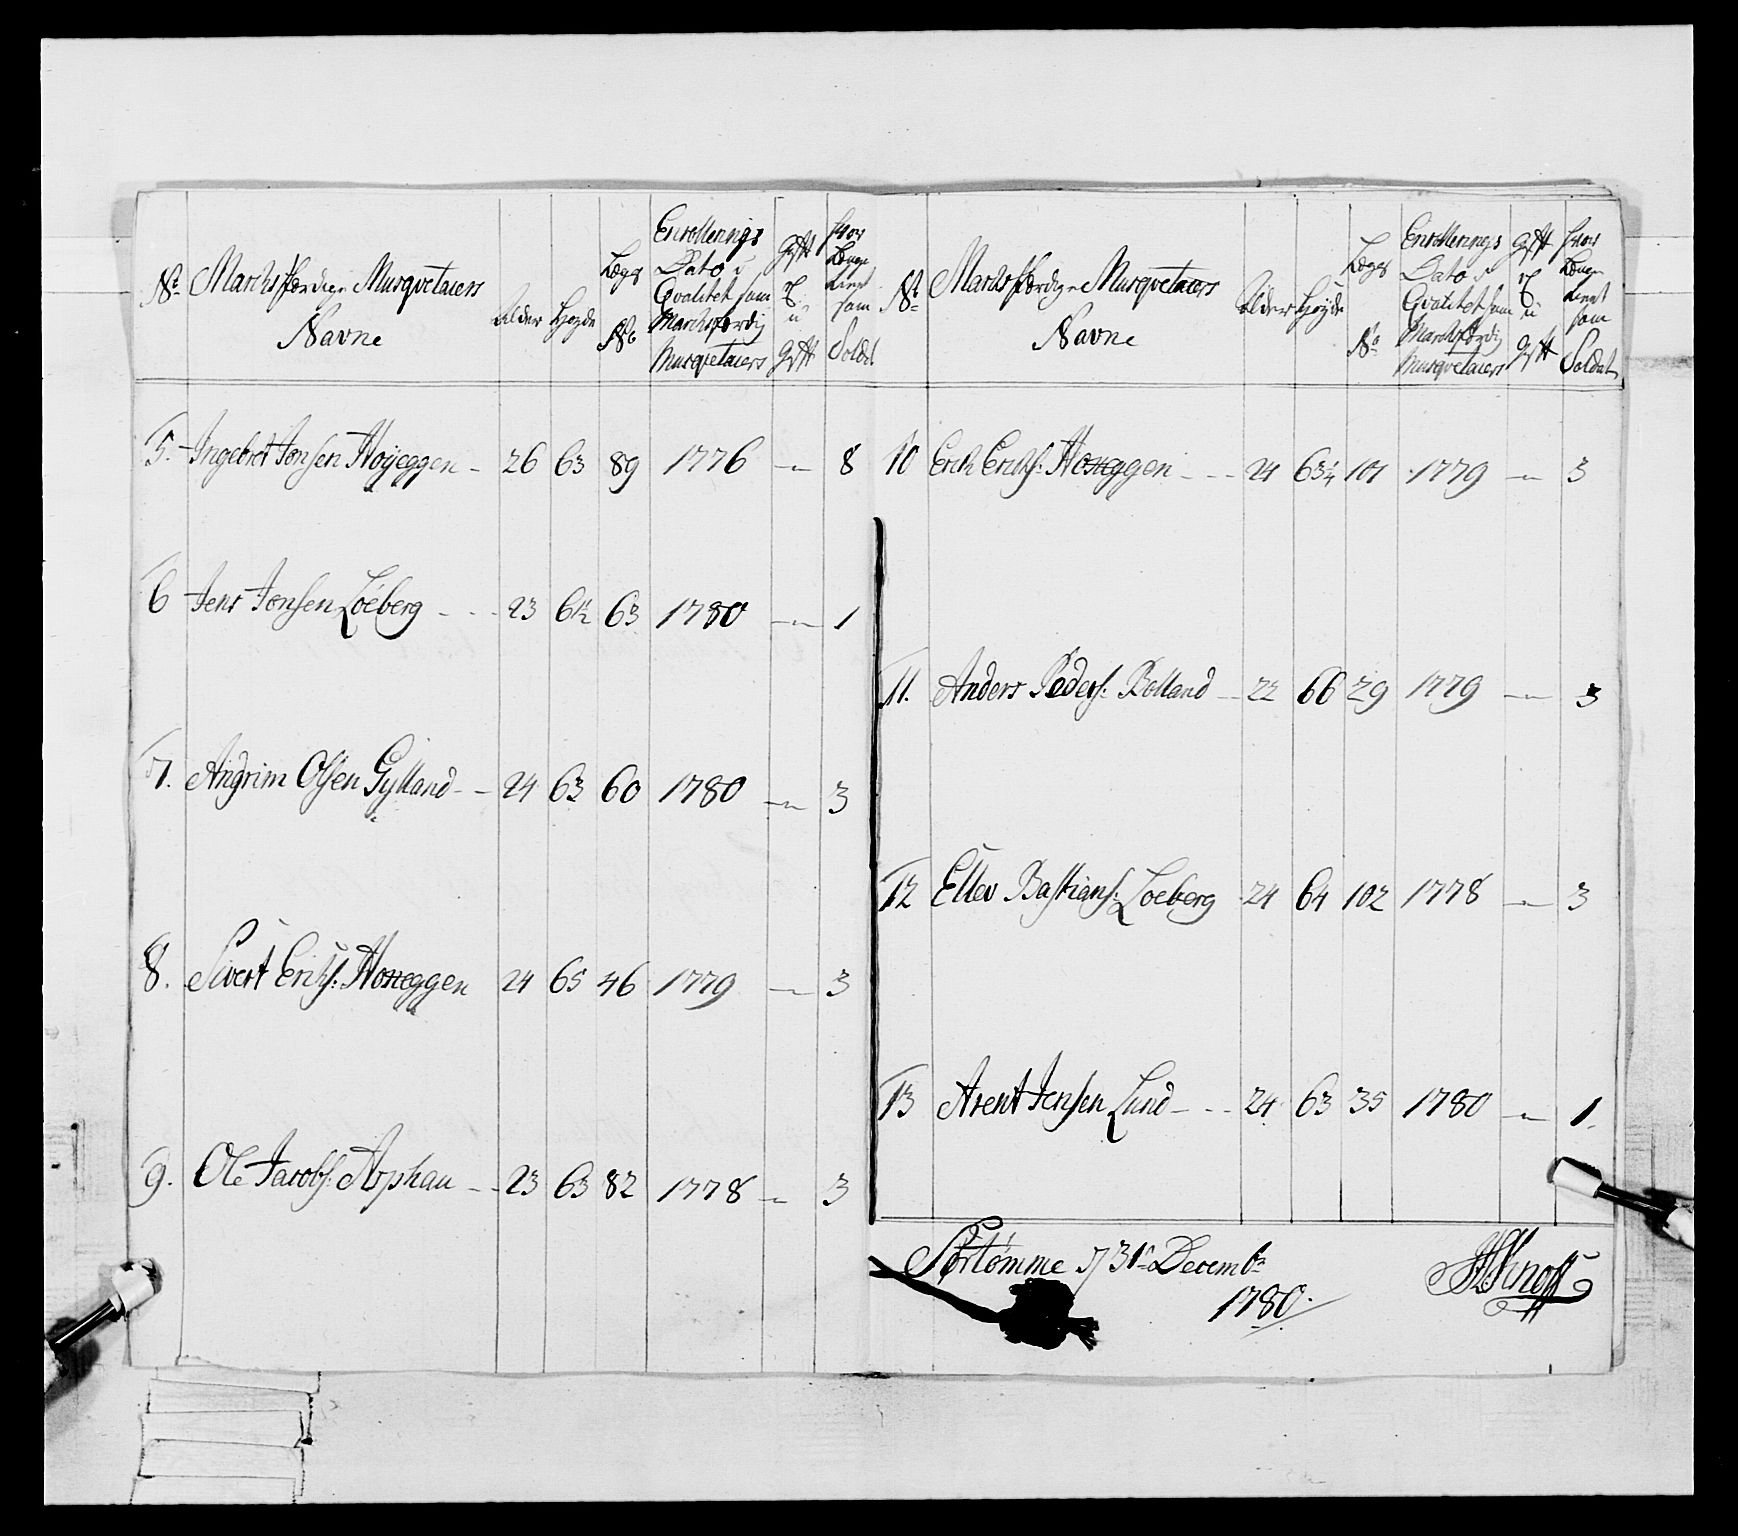 No Marchsfærdige Musqvetaiers Navne Alder Høyde Lægs No Enrollerings Dato u Qvalitet som Marchsfærdig Musqvetaiers Gift og u Gift hvor Længe tient som Soldat
5. Ingebret Jonsen Hoyeggen - 26 63 89 1776 - " - 8
6 Jens Jonsen Loeberg - - - 23 6½ 63 1780 - " - 1
7. Angrim Olsen Gylland - - 24 63 60 1780 - " - 3
8. Sivert Erichs: Honeggen 24 65 46 1779 - " - 3
9. Ole Jacobs: Asphau - - 23 63 82 1778 - " 3
No Marchsfærdige Musqvetaiers Navne Alder Høyde Lægs No Enrollerings Dato u Qvalitet som Marchsfærdig Musqvetaiers Gift og u Gift hvor Længe tient som Soldat
10 Erich Erichs: Honeggen - - - 24 63¼ 101 1779 - " - 3
11. Anders Peders: Bolland - 22 66 29 1779 - " - 3
12 Ellev Bastians: Loeberg 24 64 102 1778 - " - 3
13 Arent Jensen Lund - - - 24 63 35 1780 - " - 1.
31te Decembr
1780.
Knoff